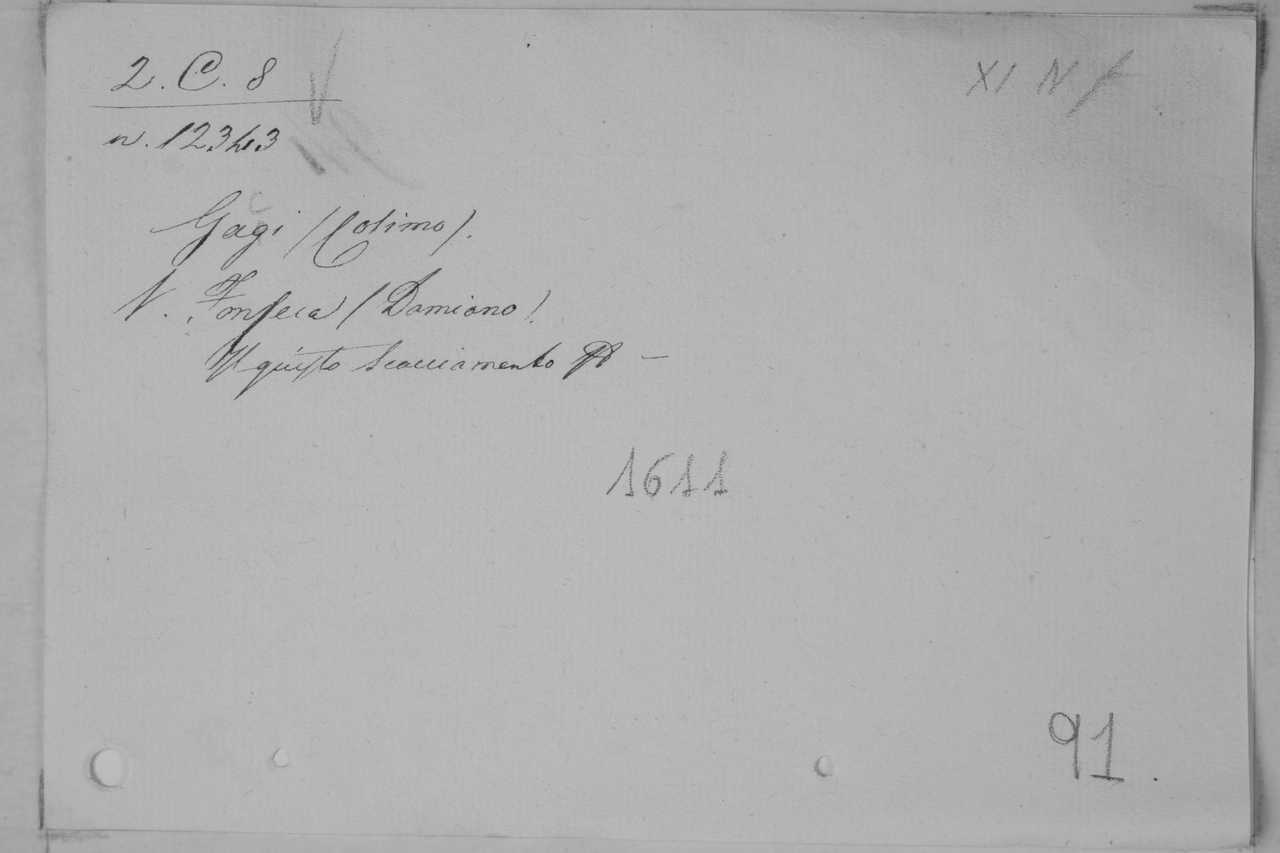 2. C. 8
XI N f
n. 12343
Gagi (Cosimo).
V. Fonseca (Damiano).
Il giusto scacciamento
1611
91.